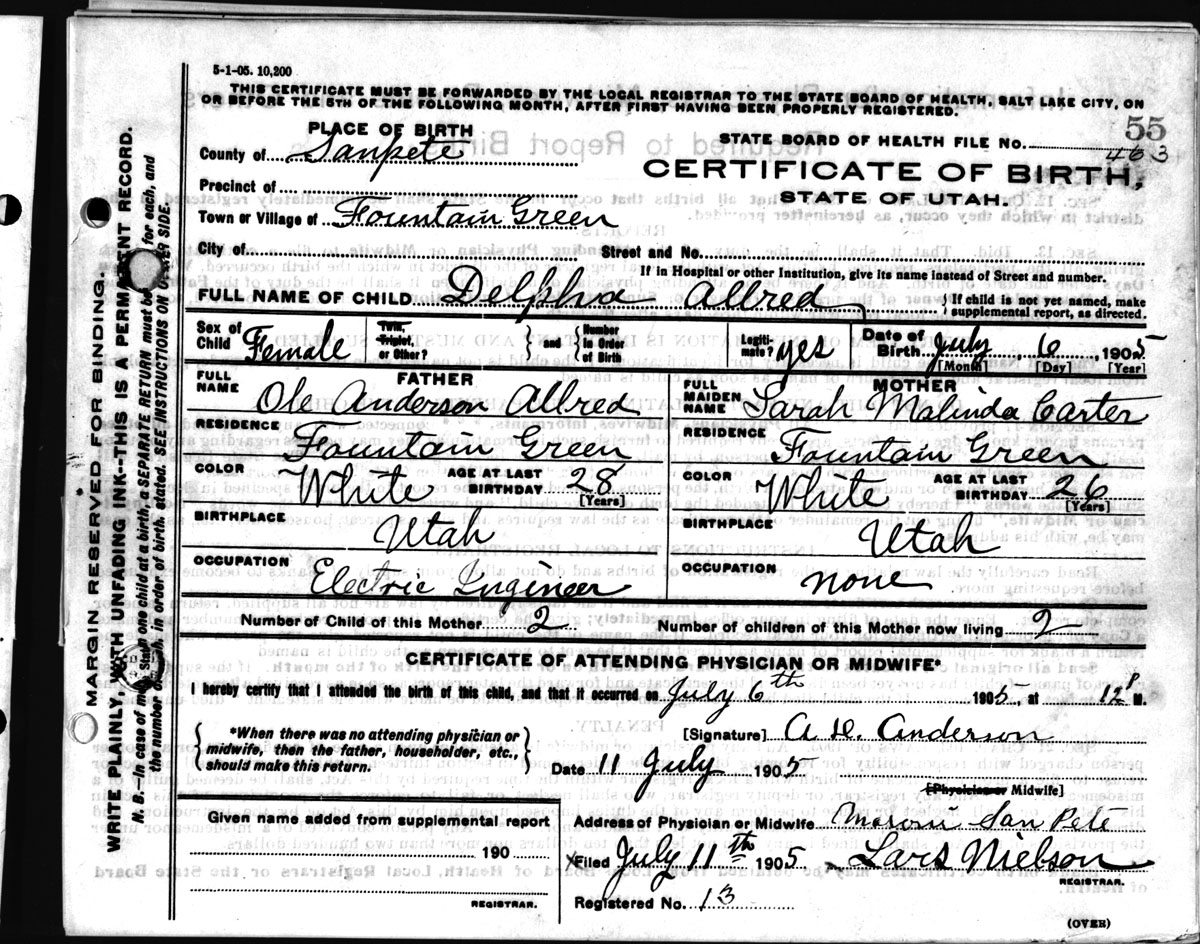 5-1-05. 10,200
THIS CERTIFICATE MUST BE FORWARDED BY THE LOCAL REGISTRAR TO THE STATE BOARD OF HEALTH, SALT LAKE CITY, ON
OR BEFORE THE 5TH OF THE FOLLOWING MONTH, AFTER FIRST HAVING BEEN PROPERLY REGISTERED.
55
PLACE OF BIRTH
STATE BOARD OF HEALTH FILE No. 463
County of Sanpete
CERTIFICATE OF BIRTH,
Precinct of
STATE OF UTAH.
Town or Village of Fountain Green
City of Street and No.
If in Hospital or other Institution, give its name instead of Street and number.
FULL NAME OF CHILD Delpha Allred { If child is not yet named, make supplemental report, as directed.
Sex of Child Female Twin, Triplet, or Other? } and { Number in Order of Birth Legitimate? yes Date of Birth July 6 1905
[Month] [Day] [Year]
FATHER
FULL NAME Ole Anderson Allred
RESIDENCE Fountain Green
COLOR White AGE AT LAST BIRTHDAY 28 [Years]
BIRTHPLACE Utah
OCCUPATION Electric Ingineer
MOTHER
FULL MAIDEN NAME Sarah Malinda Carter
RESIDENCE Fountain Green
COLOR White AGE AT LAST BIRTHDAY 26 [Years]
BIRTHPLACE Utah
OCCUPATION none
Number of Child of this Mother 2 Number of children of this Mother now living 2
CERTIFICATE OF ATTENDING PHYSICIAN OR MIDWIFE*
I hereby certify that I attended the birth of this child, and that it occurred on July 6th 1905, at 12 P M.
{ *When there was no attending physician or
midwife, then the father, householder, etc.,
should make this return. }
[Signature] A. D. Anderson
Date 11 July 1905
[Physician or Midwife]
Given name added from supplemental report
190
REGISTRAR.
Address of Physician or Midwife Moroni San Pete
Filed July 11th 1905 Lars Nielson
REGISTRAR.
Registered No. 13
(OVER)
MARGIN RESERVED FOR BINDING.
WRITE PLAINLY, WITH UNFADING INK--THIS IS A PERMANENT RECORD.
N. B.--In case of more than one child at a birth, a SEPARATE RETURN must be for each, and
the number of each in order of birth stated. SEE INSTRUCTIONS ON OTHER SIDE.